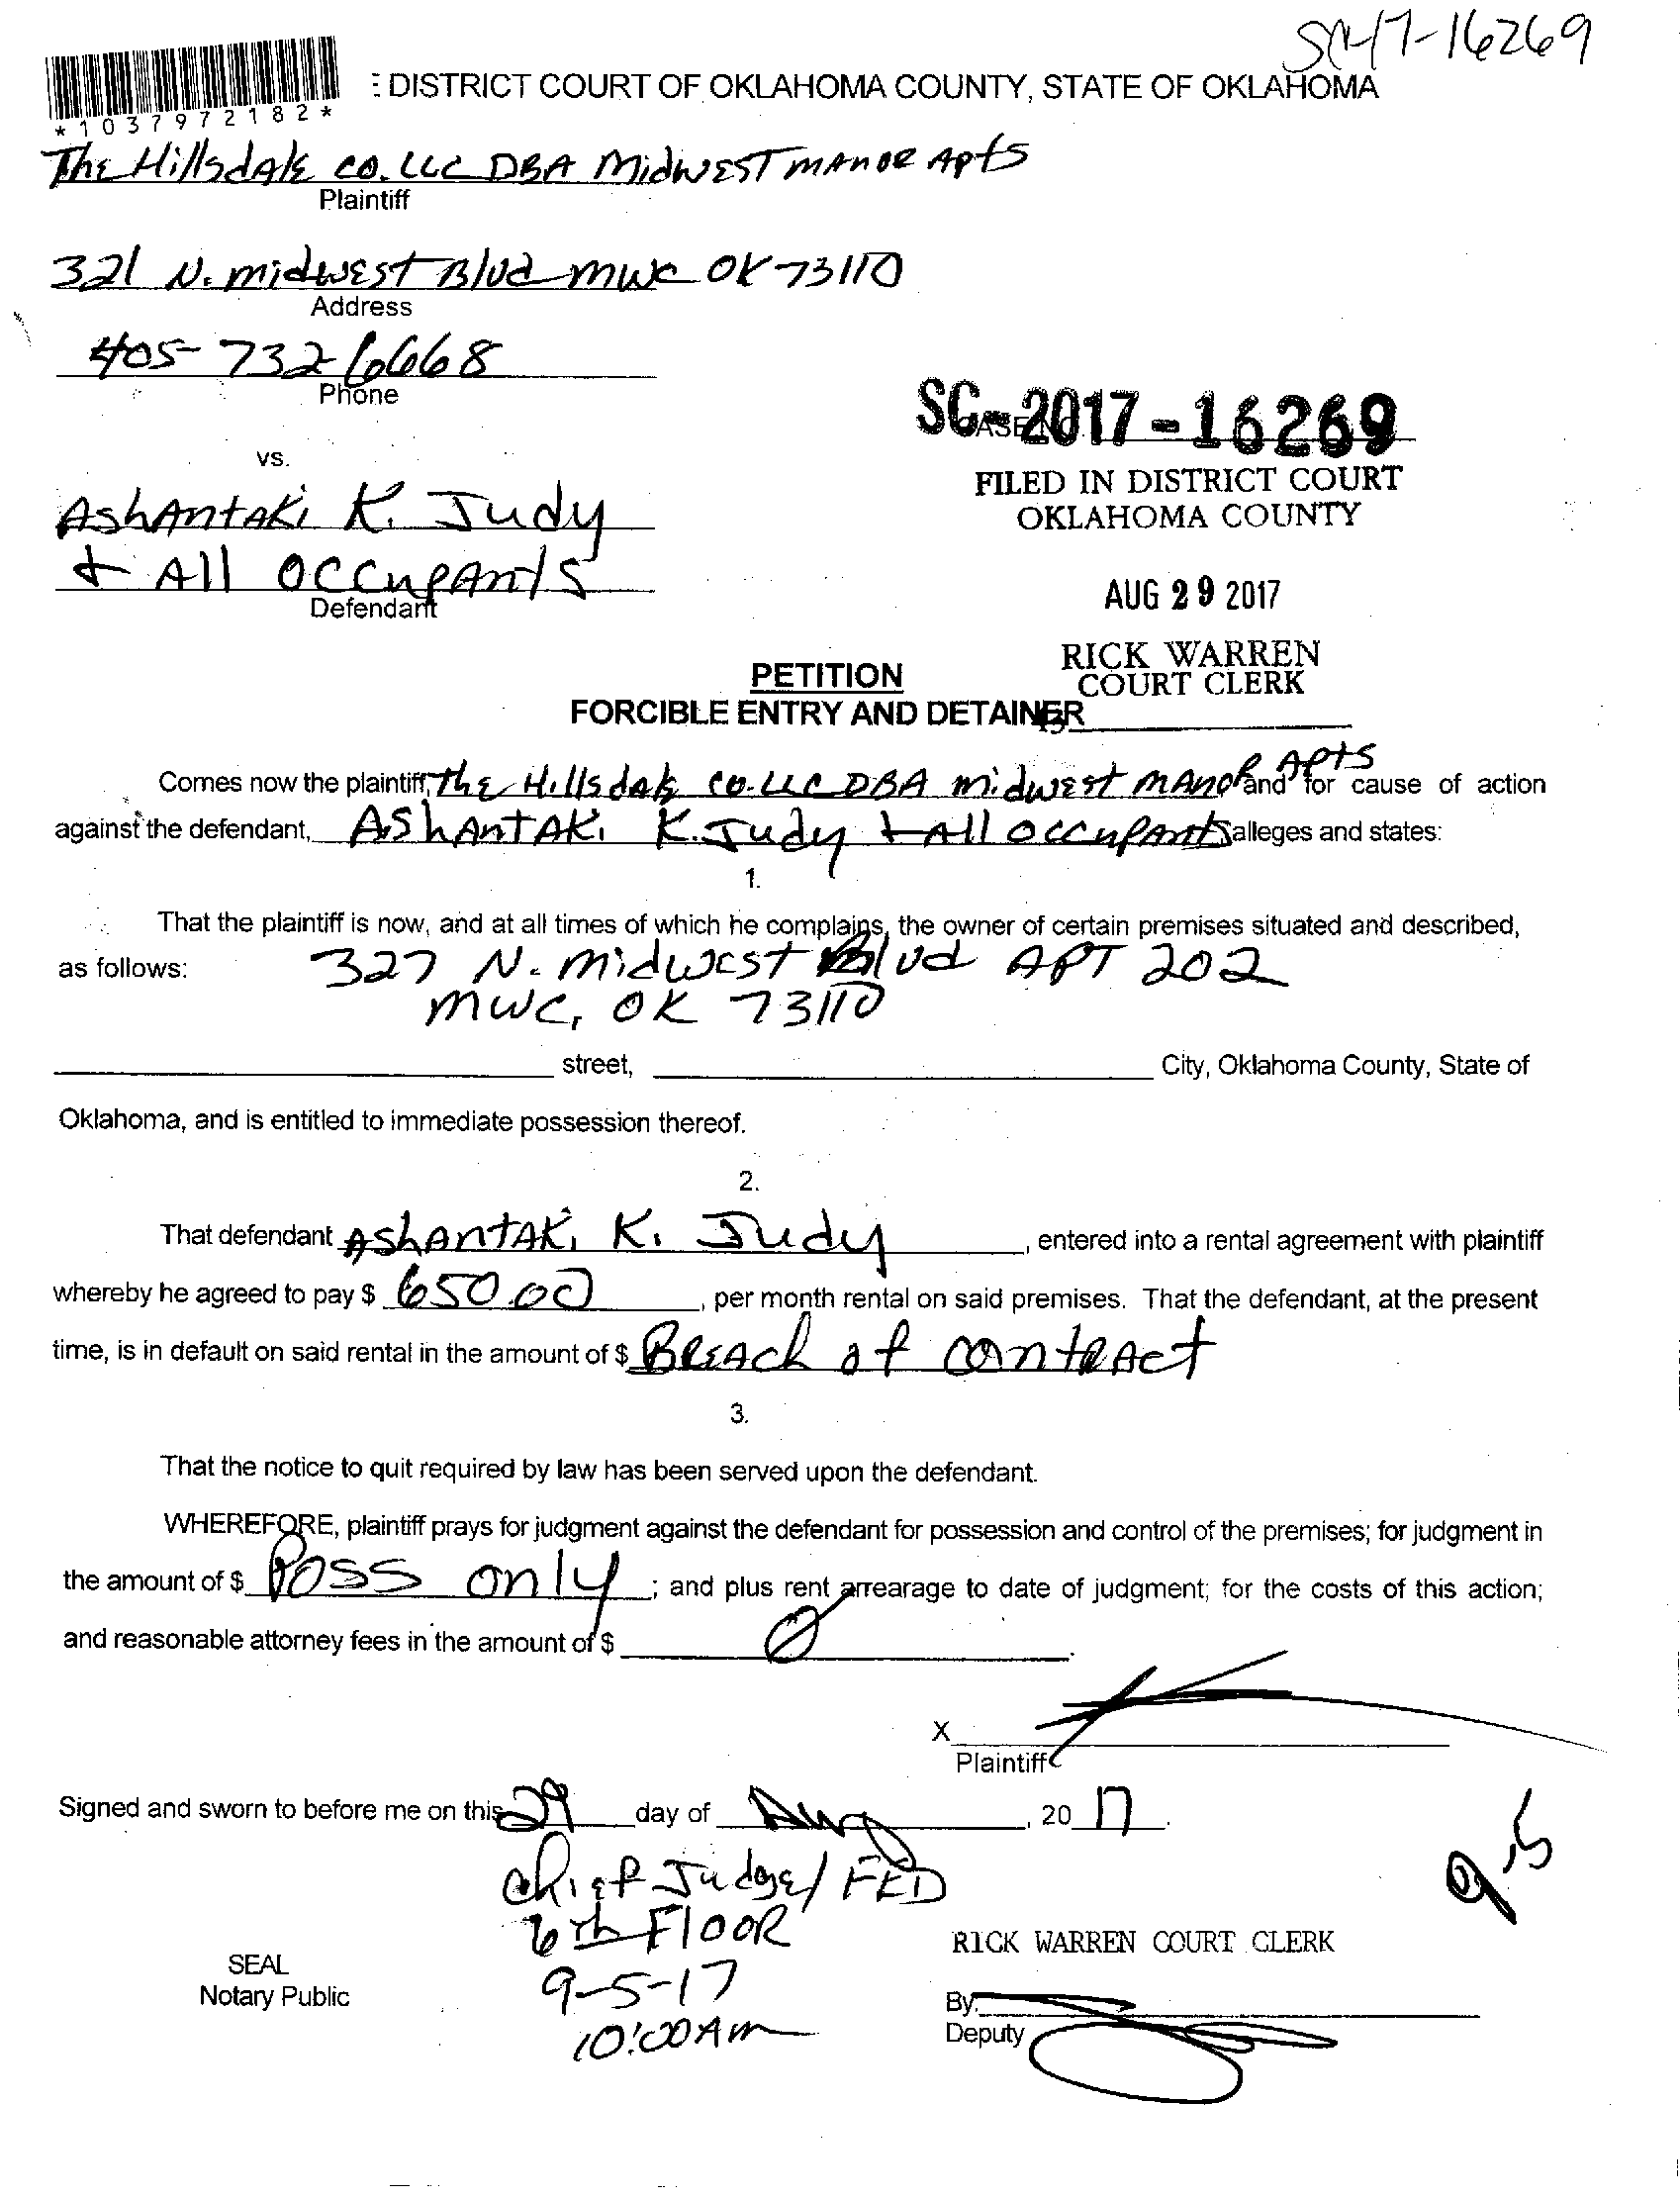 SC-17-16269
*1037972182*
: DISTRICT COURT OF OKLAHOMA COUNTY, STATE OF OKLAHOMA
The Hillsdale co. LLC DBA MidwEST MANOR Apts
Plaintiff
321 N. midwest Blvd mwc OK 73110
Address
405-732-6668
Phone
SC-2017-16269
FILED IN DISTRICT COURT
OKLAHOMA COUNTY
vs.
AshAntAKi K. Judy
+ All OccupAnts
Defendant
AUG 29 2017
RICK WARREN
COURT CLERK
PETITION
FORCIBLE ENTRY AND DETAINER
Comes now the plaintiff, The Hillsdale co. LLC DBA midwest MANOR Apts and for cause of action
against the defendant, AshAntAKi K. Judy + All occupAnts alleges and states:
1.
That the plaintiff is now, and at all times of which he complains, the owner of certain premises situated and described,
as follows: 327 N. midwest Blvd APT 202
mwc, OK 73110
street, City, Oklahoma County, State of
Oklahoma, and is entitled to immediate possession thereof.
2.
That defendant AshAntAKi K. Judy, entered into a rental agreement with plaintiff
whereby he agreed to pay $ 650.00, per month rental on said premises. That the defendant, at the present
time, is in default on said rental in the amount of $ BreAch of contrAct
3.
That the notice to quit required by law has been served upon the defendant.
WHEREFORE, plaintiff prays for judgment against the defendant for possession and control of the premises; for judgment in
the amount of $ Poss only; and plus rent arrearage to date of judgment; for the costs of this action;
and reasonable attorney fees in the amount of $ 0.
X
Plaintiff
Signed and sworn to before me on this 29 day of Aug, 20 17.
chief Judge/ FED
6th FlooR
9-5-17
10:00 Am
9-5
SEAL
Notary Public
RICK WARREN COURT CLERK
By:
Deputy